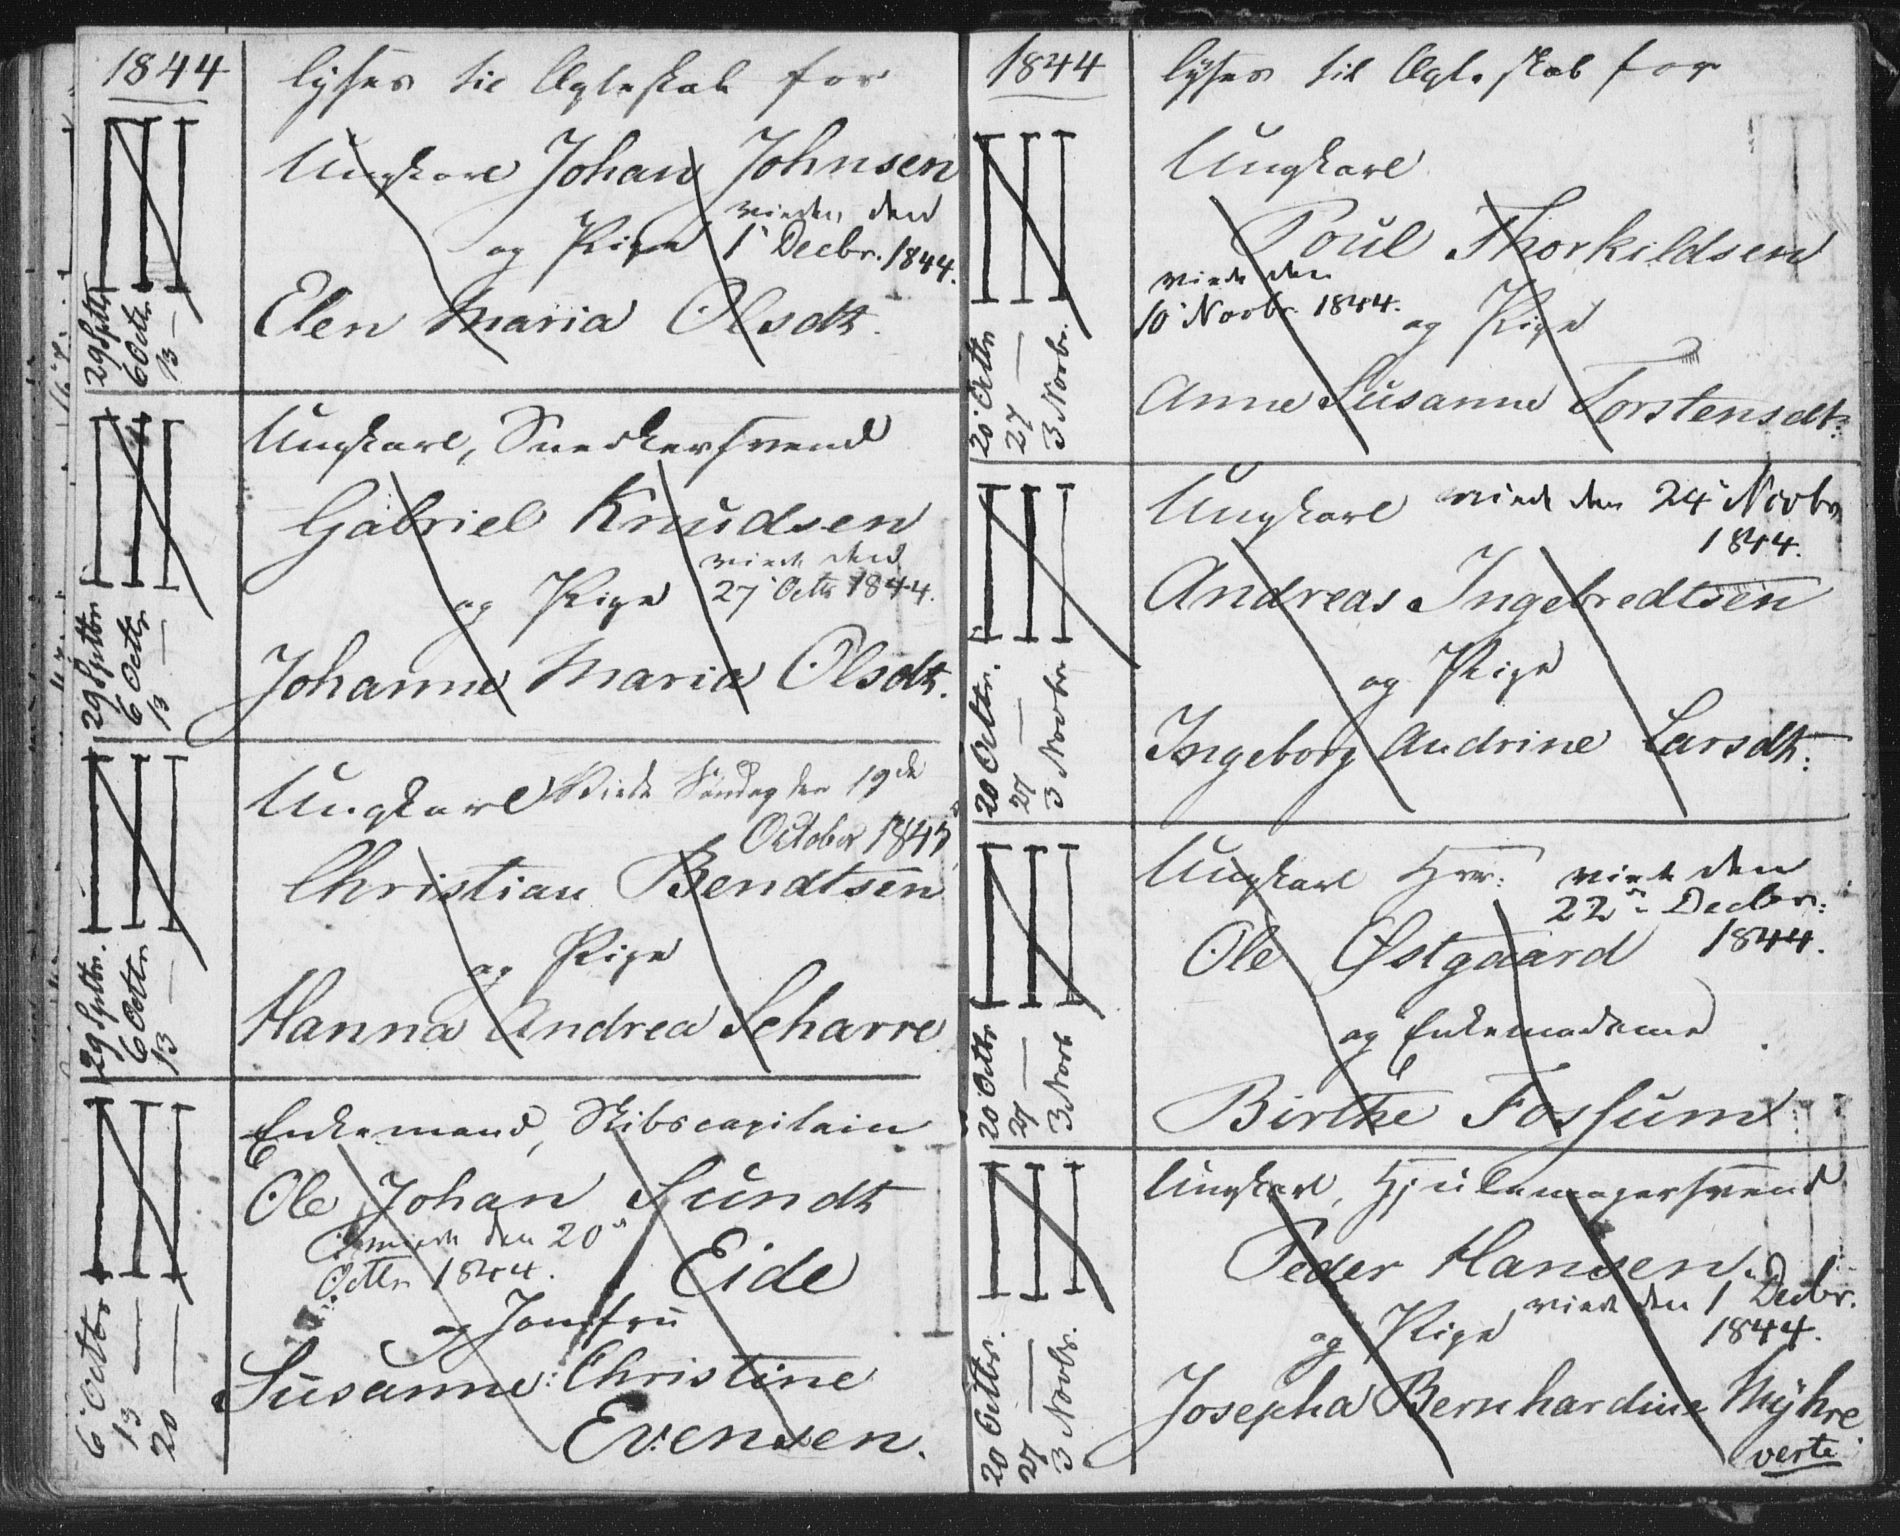 1844
lyses til Ægteskab for
Ungkarl Johan Johnsen
viede den
og Pige 1 Decbr. 1844.
Elen Maria Olsdt.
29 Septbr
6 Octbr
13 —
Ungkarl, Snedkersvend
Gabriel Knudsen
viede den
og Pige 27 Octbr 1844.
Johanne Maria Olsdt.
29 Septbr
6 Octbr
13 —
Ungkarl Viede Søndag den 19de
October 1845
Christian Bendtsen
og Pige
Hanna Andrea Scharre
29 Septbr.
6 Octbr
13 —
Enkemand, Skibscapitain
Ole Johan Sundt
viede den 20
Octbr 1844.
Eide
og Jomfru
Susanne Christine
Evensen.
6 Octbr
13 —
20 —
1844
lyses til Ægteskab for
Ungkarl
Poul Thorkildsen
viede den
10 Novbr. 1844.
og Pige
Anne Susanne Torstensdt.
20 Octbr
27 —
3 Novbr.
Ungkarl viede den 24 Novbr
1844.
Andreas Ingebredtsen
og Pige
Ingeborg Andrine Larsdt.
20 Octbr.
27 —
3 Novbr
Ungkarl Hrr. viede den
22 Decbr.
1844.
Ole Østgaard
og Enkemadame
Birthe Fossum
20 Octbr
27 —
3 Novb
Ungkarl, Hjulemagersvend
Peder Hansen
viede den 1 Decbr.
og Pige 1844.
Josepha Bernhardine Myhre
verte
20 Octbr.
27 —
3 Novbr.